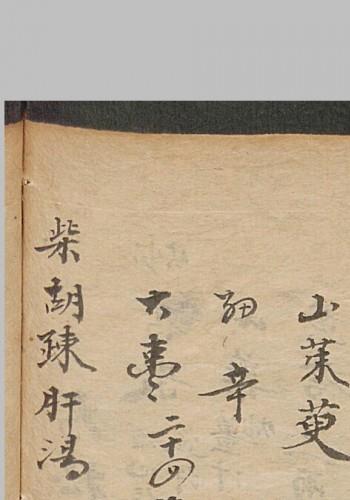 山茱萸
細辛
大棗二十四
柴胡疎肝湯